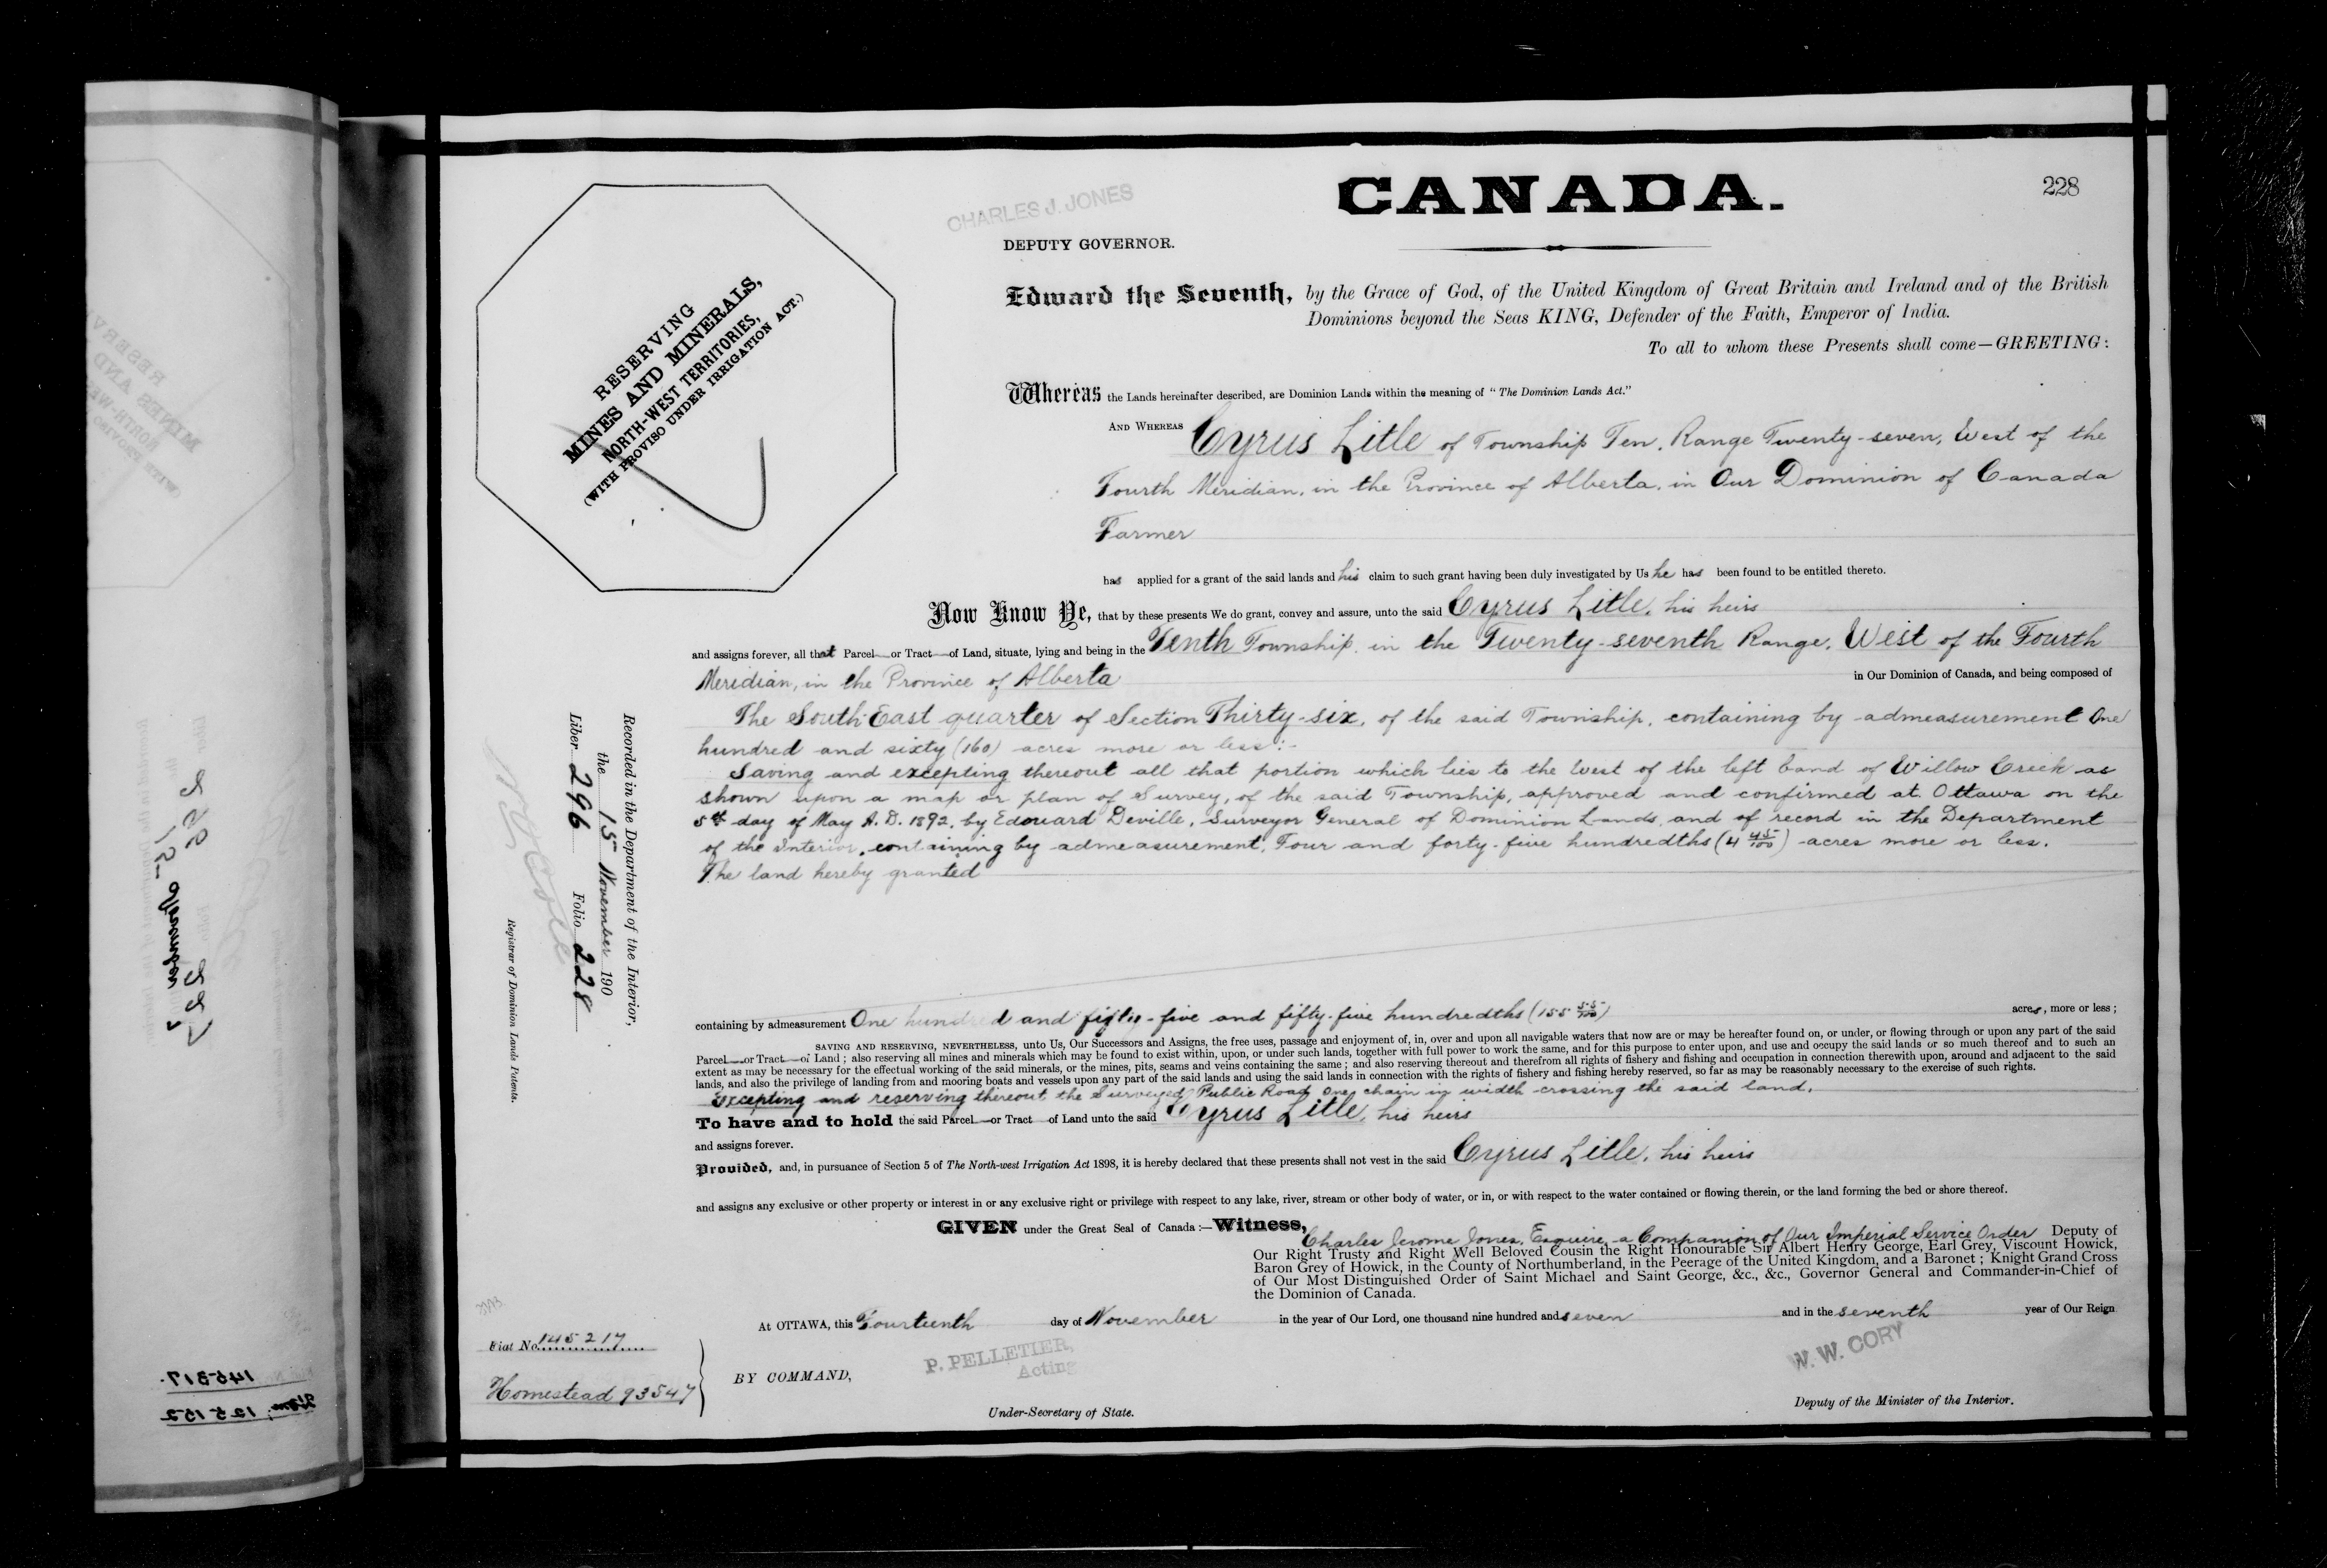 CANADA.
228
CHARLES J. JONES
DEPUTY GOVERNOR.
RESERVING
MINES AND MINERALS,
NORTH-WEST TERRITORIES,
(WITH PROVISO UNDER IRRIGATION ACT.)
Edward the Seventh, by the Grace of God, of the United Kingdom of Great Britain and Ireland and of the British
Dominions beyond the Seas KING, Defender of the Faith, Emperor of India.
To all to whom these Presents shall come—GREETING:
Whereas the Lands hereinafter described, are Dominion Lands within the meaning of "The Dominion Lands Act."
AND WHEREAS Cyrus Litle of Township Ten, Range Twenty-seven, West of the
Fourth Meridian, in the Province of Alberta, in Our Dominion of Canada
Farmer
has applied for a grant of the said lands and his claim to such grant having been duly investigated by Us he has been found to be entitled thereto.
Now Know Ye, that by these presents We do grant, convey and assure, unto the said Cyrus Litle, his heirs
and assigns forever, all that Parcel or Tract of Land, situate, lying and being in the Tenth Township, in the Twenty-seventh Range, West of the Fourth
Meridian, in the Province of Alberta in Our Dominion of Canada, and being composed of
The South East quarter of Section Thirty-six, of the said Township, containing by admeasurement One
hundred and sixty (160) acres more or less:-
Saving and excepting thereout all that portion which lies to the West of the left band of Willow Creek as
shown upon a map or plan of Survey, of the said Township, approved and confirmed at Ottawa on the
5th day of May A. D. 1892, by Edouard Deville, Surveyor General of Dominion Lands, and of record in the Department
of the Interior, containing by admeasurement, Four and forty-five hundredths (4 45/100) acres more or less.
The land hereby granted
containing by admeasurement One hundred and fifty-five and fifty-five hundredths (155 55/100) acres, more or less;
SAVING AND RESERVING, NEVERTHELESS, unto Us, Our Successors and Assigns, the free uses, passage and enjoyment of, in, over and upon all navigable waters that now are or may be hereafter found on, or under, or flowing through or upon any part of the said
Parcel or Tract of Land; also reserving all mines and minerals which may be found to exist within, upon, or under such lands, together with full power to work the same, and for this purpose to enter upon, and use and occupy the said lands or so much thereof and to such an
extent as may be necessary for the effectual working of the said minerals, or the mines, pits, seams and veins containing the same; and also reserving thereout and therefrom all rights of fishery and fishing and occupation in connection therewith upon, around and adjacent to the said
lands, and also the privilege of landing from and mooring boats and vessels upon any part of the said lands and using the said lands in connection with the rights of fishery and fishing hereby reserved, so far as may be reasonably necessary to the exercise of such rights.
Excepting and reserving thereout the Surveyed Public Road One chain in width crossing the said land.
To have and to hold the said Parcel or Tract of Land unto the said Cyrus Litle, his heirs
and assigns forever.
Provided, and, in pursuance of Section 5 of The North-west Irrigation Act 1898, it is hereby declared that these presents shall not vest in the said Cyrus Litle, his heirs
and assigns any exclusive or other property or interest in or any exclusive right or privilege with respect to any lake, river, stream or other body of water, or in, or with respect to the water contained or flowing therein, or the land forming the bed or shore thereof.
GIVEN under the Great Seal of Canada:—Witness,
Charles Jerome Jones, Esquire, a Companion of Our Imperial Service Order Deputy of
Our Right Trusty and Right Well Beloved Cousin the Right Honourable Sir Albert Henry George, Earl Grey, Viscount Howick,
Baron Grey of Howick, in the County of Northumberland, in the Peerage of the United Kingdom, and a Baronet; Knight Grand Cross
of Our Most Distinguished Order of Saint Michael and Saint George, &c., &c., Governor General and Commander-in-Chief of
the Dominion of Canada.
At OTTAWA, this Fourteenth day of November in the year of Our Lord, one thousand nine hundred and seven and in the seventh year of Our Reign
BY COMMAND,
P. PELLETIER,
Acting
Under-Secretary of State.
W. W. CORY
Deputy of the Minister of the Interior.
Recorded in the Department of the Interior,
the 15th November 190
Liber 296 Folio 228
Registrar of Dominion Lands Patents.
Fiat No. 145217
Homestead 93547